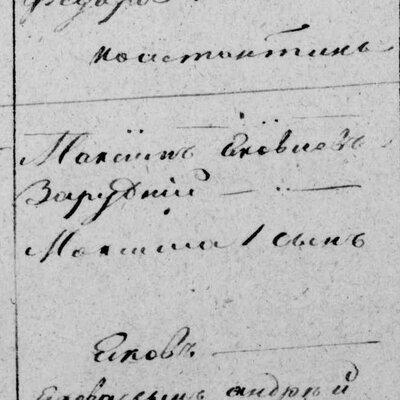 Федоръ
Константинъ
Максимъ Яковлевъ
Зарудній
Максима 1 сынъ
Яковъ
Якова сынъ андрѣй